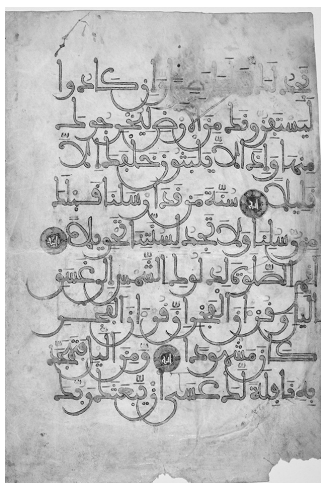 تجد وإن كادوا
ليستفزونك من الأرض ليخرجوك
منها وإذا لا يلبثون خلفك إلا
قليلا آية سنة من قد أرسلنا قبلك
من رسلنا ولا تجد لسنتنا تحويلا آية
أقم الصلوة لدلوك الشمس إلى غسق
اليل وقرءان الفجر إن قرءان الفجر
كان مشهودا آية ومن اليل فتهجد
به نافلة لك عسى أن يبعثك ربك